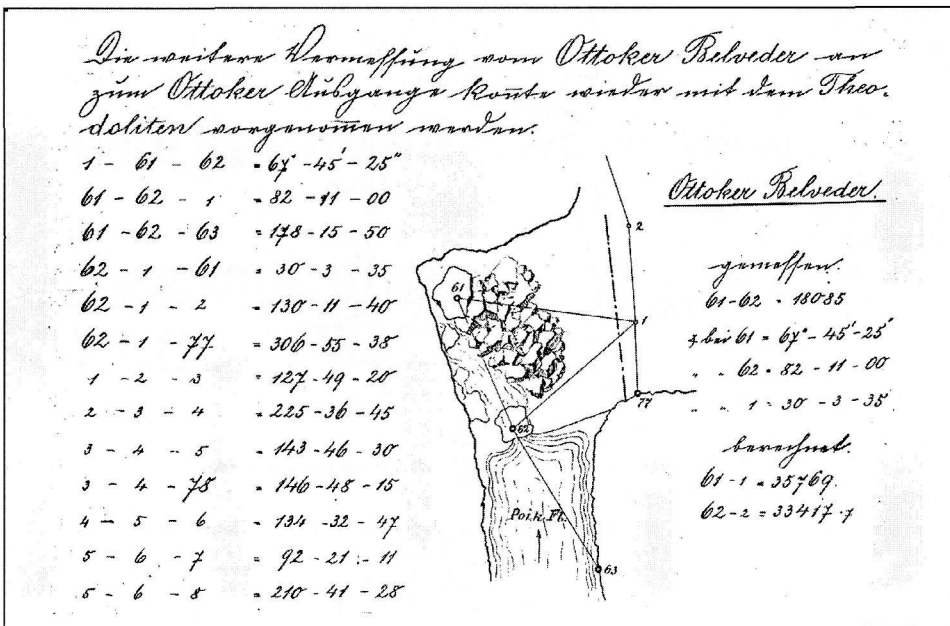 Die weitere Vermessung vom Ottoker Belveder an
zum Ottoker Ausgange konnte wieder mit dem Theo-
doliten vorgenommen werden.
1 - 61 - 62 = 67° - 45' - 25"
61 - 62 - 1 = 82 - 11 - 00
61 - 62 - 63 = 178 - 15 - 50
62 - 1 - 61 = 30 - 3 - 35
62 - 1 - 2 = 130 - 11 - 40
62 - 1 - 77 = 306 - 55 - 38
1 - 2 - 3 = 127 - 49 - 20
2 - 3 - 4 = 225 - 36 - 45
3 - 4 - 5 = 143 - 46 - 30
3 - 4 - 78 = 146 - 48 - 15
4 - 5 - 6 = 134 - 32 - 47
5 - 6 - 7 = 92 - 21 - 11
5 - 6 - 8 = 210 - 41 - 28
2
61
1
77
62
Poik Fl.
63
Ottoker Belveder.
gemessen.
61-62 = 18085
∢ bei 61 = 67° - 45' - 25"
" " 62 = 82 - 11 - 00
" " 1 = 30 - 3 - 35
berechnet.
61-1 = 35769.
62-2 = 33417.7